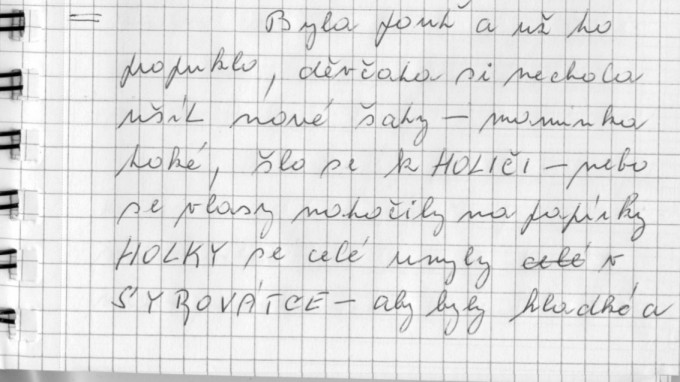 = Byla pouť a už ho
popuklo, děvčata si nechala
ušít nové šaty – maminka
také, šlo se k HOLIČI – nebo
se vlasy natočily na papírky
HOLKY se celé umyly celé v
SYROVÁTCE – aby byly hladké a